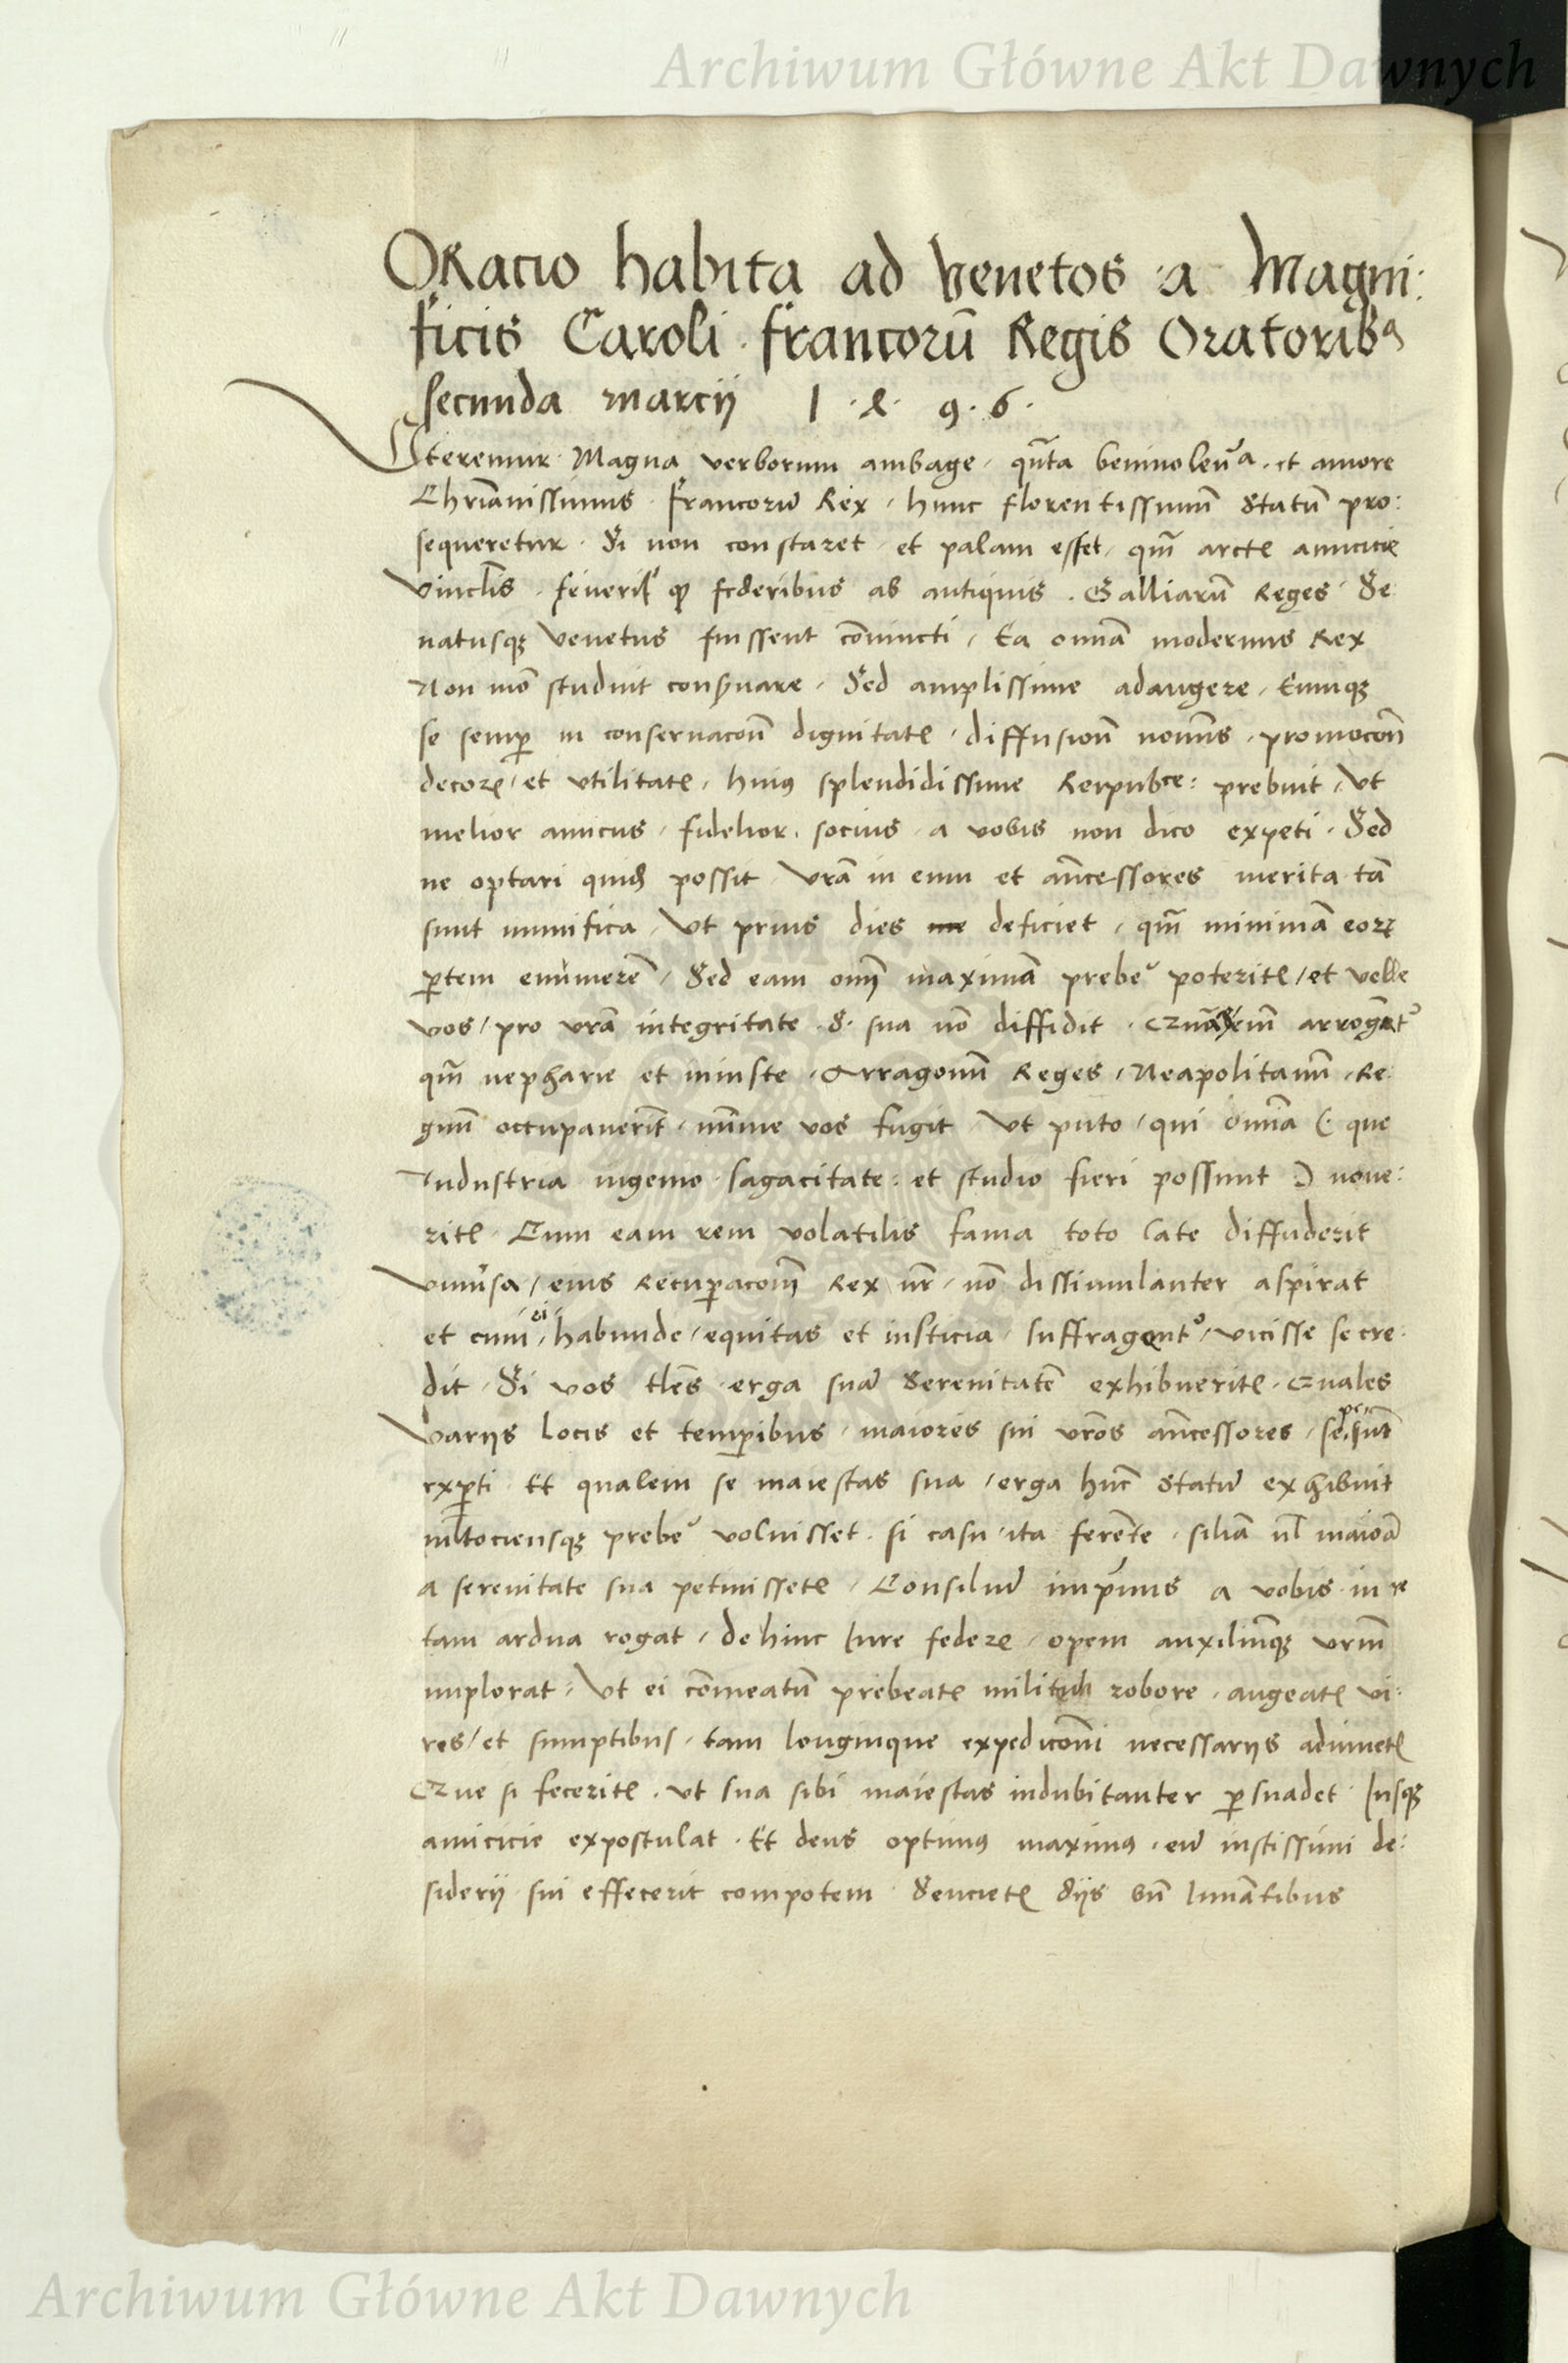 Archiwum Główne Akt Dawnych
ORacio habita ad Venetos a Magni:
ficis Caroli francorū Regis Oratorib9
secunda marcij 1·8·9·6·
Uteremur Magna verborum ambage, qūta beniuolen̄a. et amore
Chrīanissimus francorū Rex, hunc florentissimū Statū pro:
sequeretur. Si non constaret et palam esset, qm̄ arcte amicicie
vinclis federibus ab antiquis. Galliarū Reges Se
natusqꝫ Venetus fuissent cōiuncti, Ea omīa modernus Rex
Non mō studuit conseruare, Sed amplissime adaugere, Eumqꝫ
se semꝑ in conseruacōn̄ dignitatꝭ diffusionē nomīs, promocōn̄
decorꝭ, et vtilitatꝭ, huiꝰ splendidissime Reipubce: prebuit, Vt
melior amicus, fidelior, socius, a vobis non dico expeti. Sed
ne optari quidē possit Vrā in eum et ān̄cessores merita tā
sunt munifica, Vt prius dies deficiet, qm̄ minimā eorꝝ
ꝑtem enumerē, Sed eam omī maximā prebe᷑ poteritꝭ, et velle
vos, pro vrā integritate S. sua nō diffidit. arrogāt᷑
qm̄ nepharie et iniuste, Arragonū Reges, Neapolitanū, Re:
gnū occupauerīt, minime vos fugit Vt puto, qui omīa (: que
Industria ingenio sagacitate: et studio fieri possunt :) noue:
ritꝭ. Cum eam rem volatilis fama toto late diffuderit
vniuersa, eius Recuꝑacōni Rex nr̄, nō dissimulanter aspirat
et cum ei, habunde, equitas et iusticia, suffragent᷑, vicisse se cre:
dit. Si vos tl̄es erga suā Serenitatē exhibueritꝭ. Quales
varijs locis et temꝑibus, maiores sui vrōs ān̄cessores, sepe sunt
exꝑti Et qualem se maiestas sua, erga hūc Statū exhibuit
ml̄tociensqꝫ prebe᷑ voluisset. si casu ita ferente, silīa vl̄ maiorā
a serenitate sua petiuissetꝭ, Consiliū imprimis a vobis in re
tam ardua rogat, dehinc Iure federꝭ, opem auxiliūqꝫ vrm̄
implorat, Vt ei cōmeatū prebeatꝭ militum robore, augeatꝭ vi:
res, et sumptibus, tam longinque expedicōni necessarijs adiuuetꝭ
Que si feceritꝭ. vt sua sibi maiestas indubitanter ꝑsuadet Iusqꝫ
amicicie expostulat. Et deus optimus maximus, eū iustissimi de:
siderij sui effecerit compotem Sencietꝭ dijs bn̄ Iuuātibus
Archiwum Główne Akt Dawnych